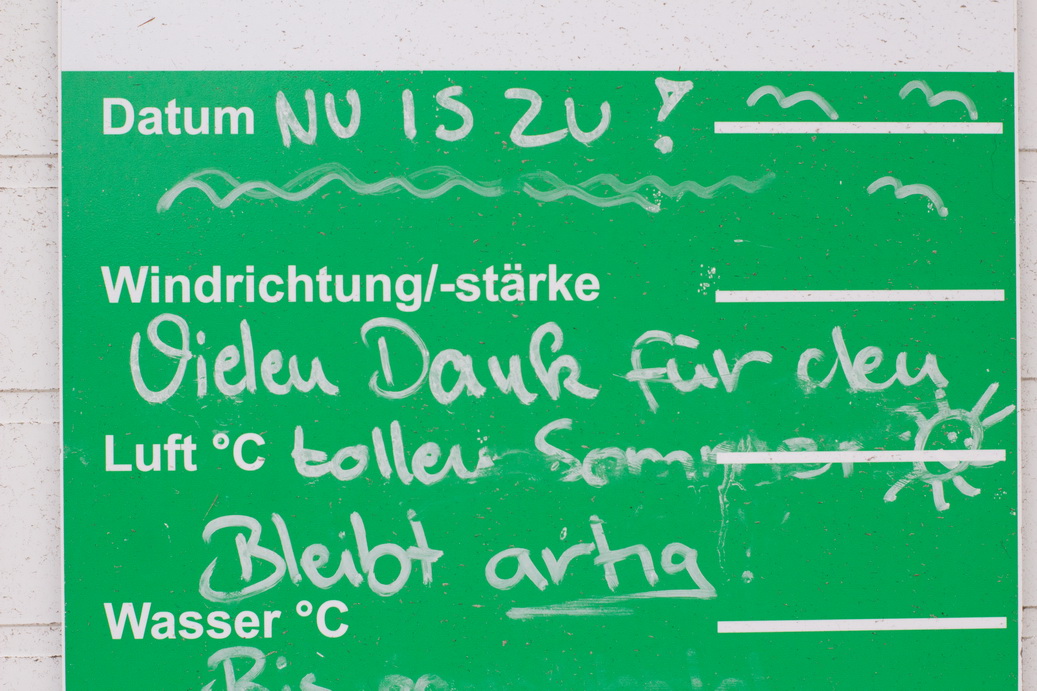 Datum NU IS ZU !
Windrichtung/-stärke
Vielen Dank für den
Luft °C tollen Sommer
Bleibt artig!
Wasser °C
Bis